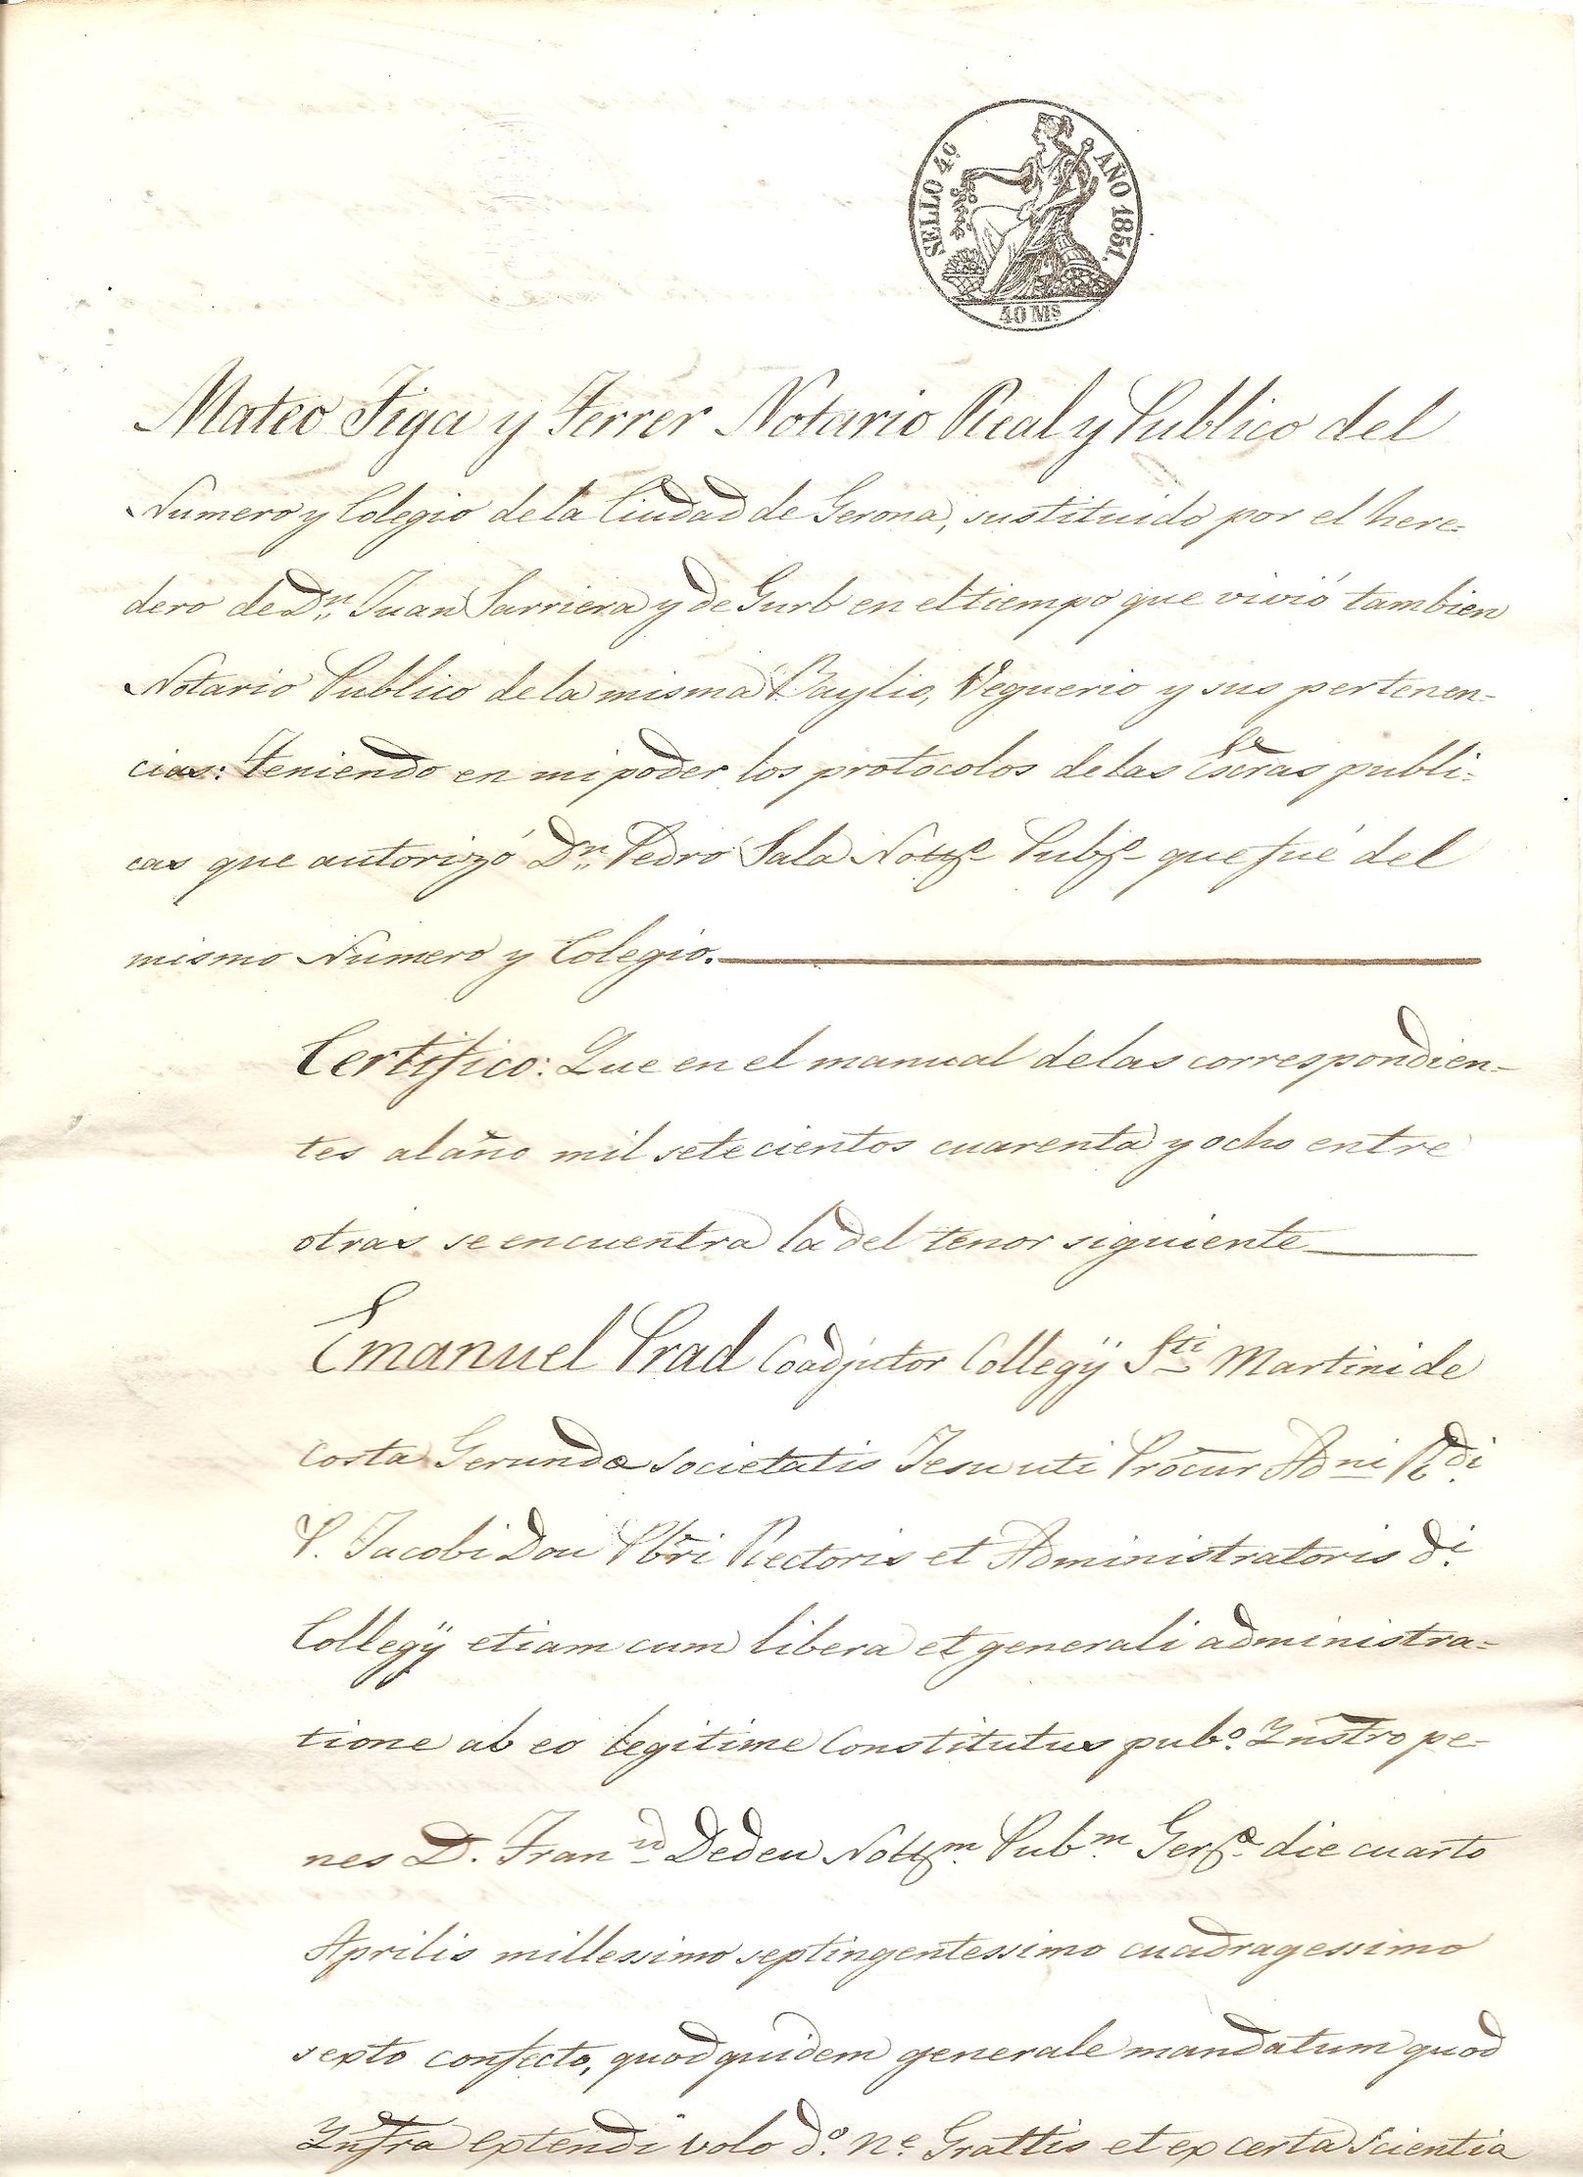 SELLO 4º AÑO 1851.
40 Ms
Mateo Figa y Ferrer Notario Real y Publico del
Numero y Colegio de la Ciudad de Gerona, sustituido por el here=
dero de Dn. Juan Sarriera y de Gurb en el tiempo que vivió tambien
Notario Publico de la misma Baylio, Veguerio y sus pertenen=
cias: Teniendo en mi poder los protocolos de las Escras publi=
cas que autorizó Dn. Pedro Sala Notº Pubº que fué del
mismo Numero y Colegio.
Certifico: Que en el manual de las correspondien=
tes al año mil setecientos cuarenta y ocho entre
otras se encuentra la del tenor siguiente
Emanuel Prad Coadjutor Collegÿ Sti Martini de
Costa Gerundæ Societatis Jesu uti Procur Adni Rdi
P. Jacobi Dou Pbri Rectoris et Administratoris di.
Collegÿ etiam cum libera et generali administra=
tione ab eo legitime Constitutus pubº. Instro pe=
nes D. Fran Dedeu Notm. Pubm Gera die cuarto
Aprilis millessimo septingentessimo cuadragessimo
sexto confecto, quod quidem generale mandatum quod
Infra extendi volo dº. ne. Grattis et ex certa Scientia